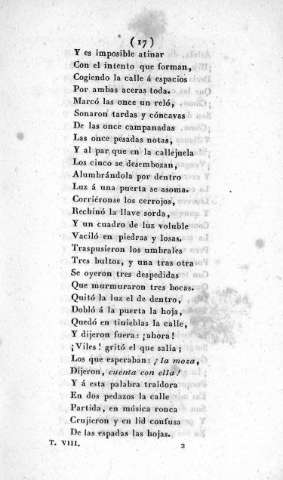 ( 17 )
Y es imposible atinar
Con el intento que forman,
Cogiendo la calle á espacios
Por ambas aceras toda.
Marcó las once un reló,
Sonaron tardas y cóncavas
De las once campanadas
Las once pesadas notas,
Y al par que en la callejuela
Los cinco se desembozan,
Alumbrándola por dentro
Luz á una puerta se asoma.
Corriéronse los cerrojos,
Rechinó la llave sorda,
Y un cuadro de luz voluble
Vaciló en piedras y losas.
Traspusieron los umbrales
Tres bultos, y una tras otra
Se oyeron tres despedidas
Que murmuraron tres bocas.
Quitó la luz el de dentro,
Dobló á la puerta la hoja,
Quedó en tinieblas la calle,
Y dijeron fuera: ¡ahora!
¡Viles! gritó el que salia;
Los que esperaban: ¡la moza,
Dijeron, cuenta con ella!
Y á esta palabra traidora
En dos pedazos la calle
Partida, en música ronca
Crujieron y en lid confusa
De las espadas las hojas.
T. VIII. 2